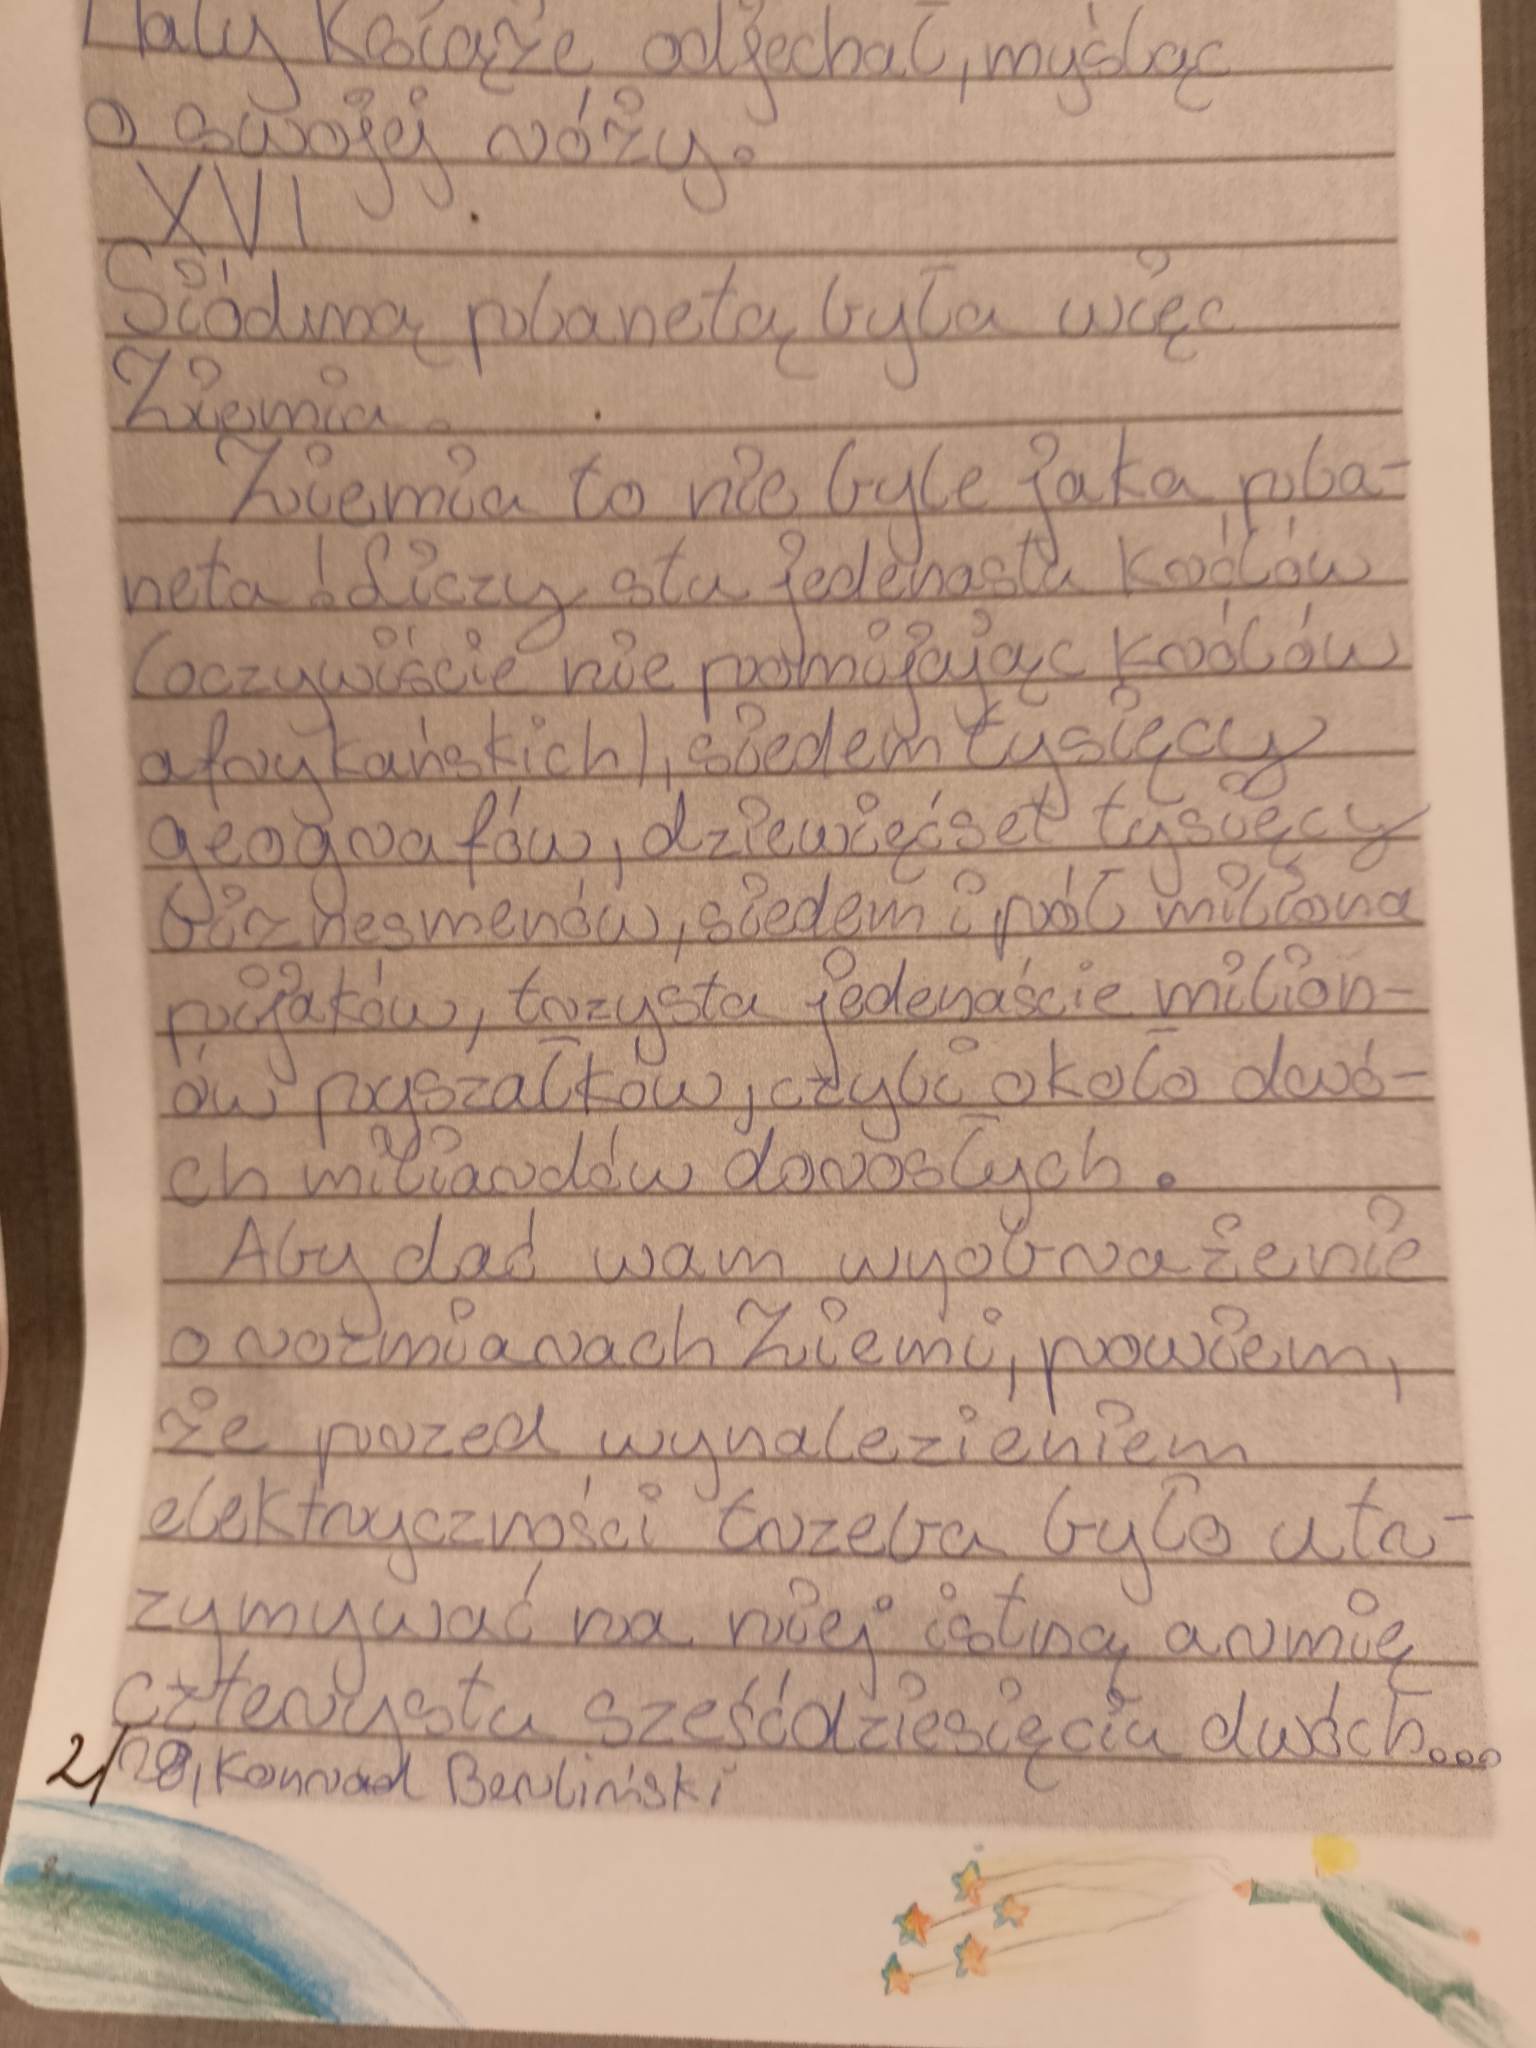 Mały Książę odjechał, myśląc
o swojej róży.
XVI
Siódmą planetą była więc
Ziemia.
Ziemia to nie byle jaka pla-
neta! Liczy stu jedenastu królów
(oczywiście nie pomijając królów
afrykańskich), siedem tysięcy
geografów, dziewięćset tysięcy
biznesmenów, siedem i pół miliona
pijaków, trzysta jedenaście milion-
ów pyszałków, czyli około dwó-
ch miliardów dorosłych.
Aby dać wam wyobrażenie
o rozmiarach Ziemi, powiem,
że przed wynalezieniem
elektryczności trzeba było utr-
zymywać na niej istną armię
czterystu sześćdziesięciu dwóch...
2/28, Konrad Berliński